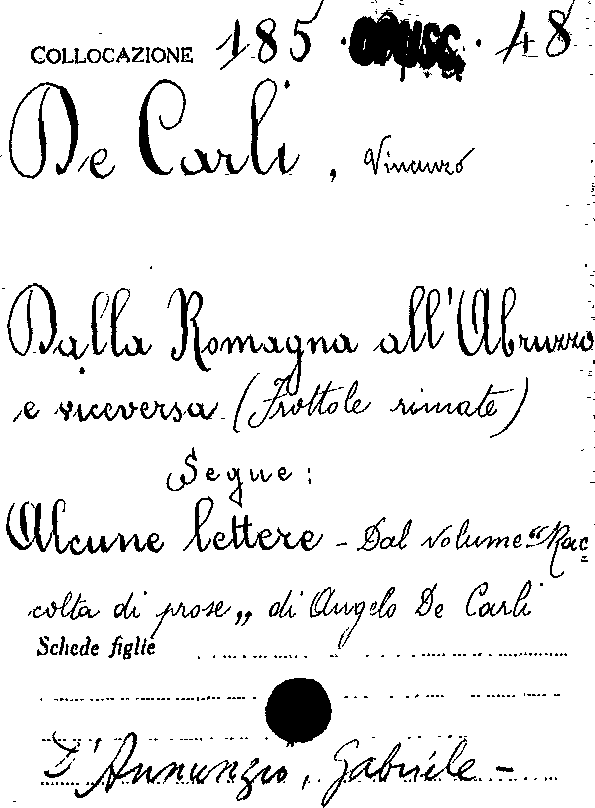 COLLOCAZIONE 185 · OPUSC. · 48
De Carli, Vincenzo
Dalla Romagna all'Abruzzo
e viceversa (Frottole rimate)
Segue:
Alcune lettere - Dal volume "Rac=
colta di prose" di Angelo De Carli
Schede figlie
D'Annunzio, Gabriele -